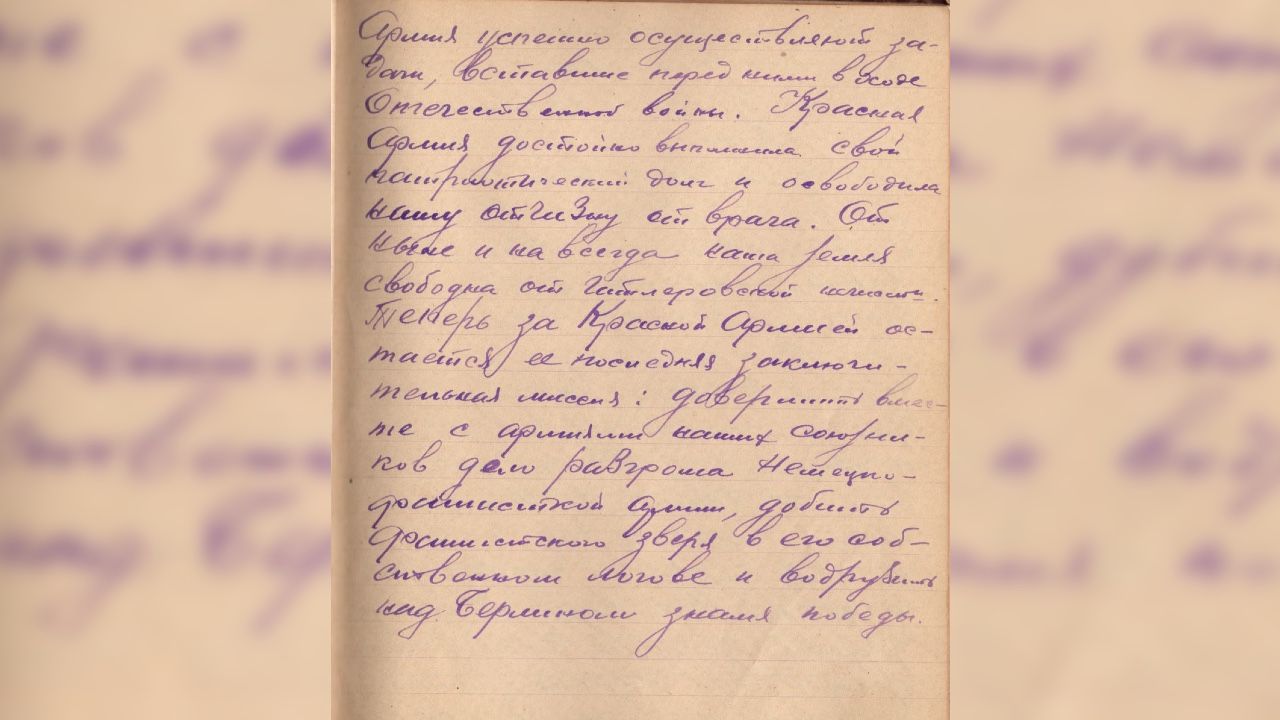 Армия успешно осуществляют за-
дачи, вставшие перед ними в ходе
Отечественной войны. Красная
Армия достойно выполнила свой
патриотический долг и освободила
нашу отчизну от врага. От
ныне и на всегда наша земля
свободна от гитлеровской нечисти.
Теперь за Красной Армией ос-
тается ее последняя заключи-
тельная миссия: довершить вмес-
те с армиями наших союзни-
ков дело разгрома Немецко-
фашисткой армии, добить
Фашистского зверя в его соб-
ственном логове и водрузить
над Берлином знамя победы.